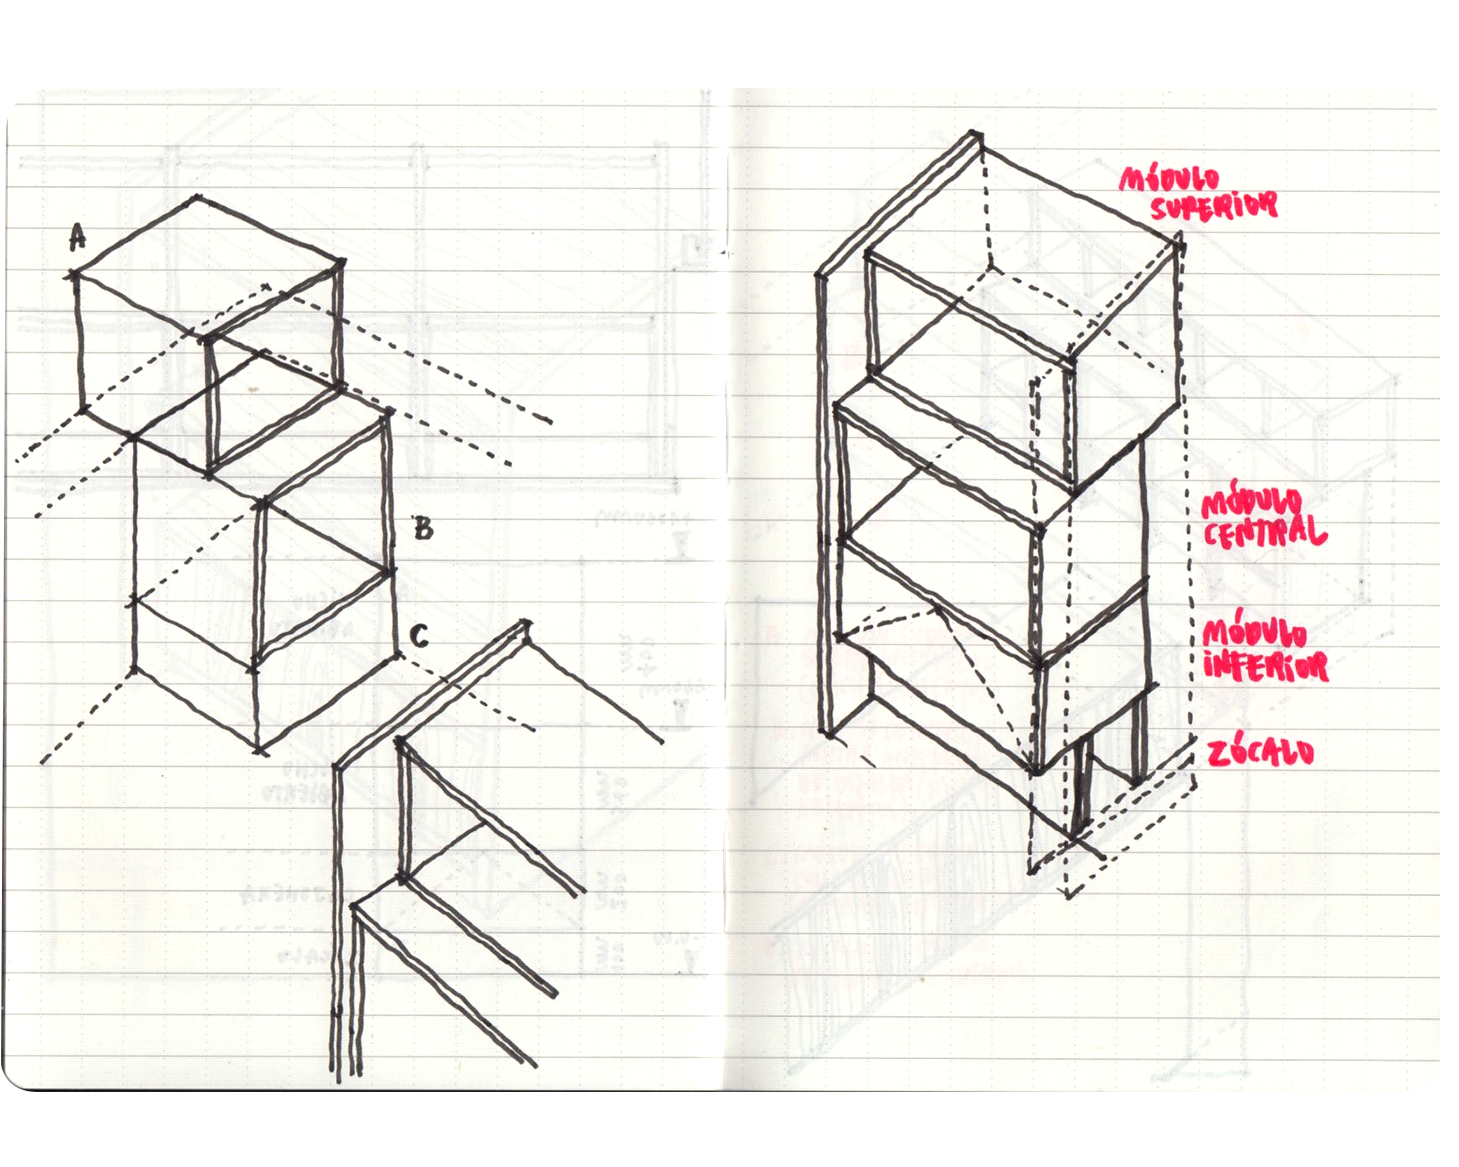 A
B
C
MÓDULO
SUPERIOR
MÓDULO
CENTRAL
MÓDULO
INFERIOR
ZÓCALO